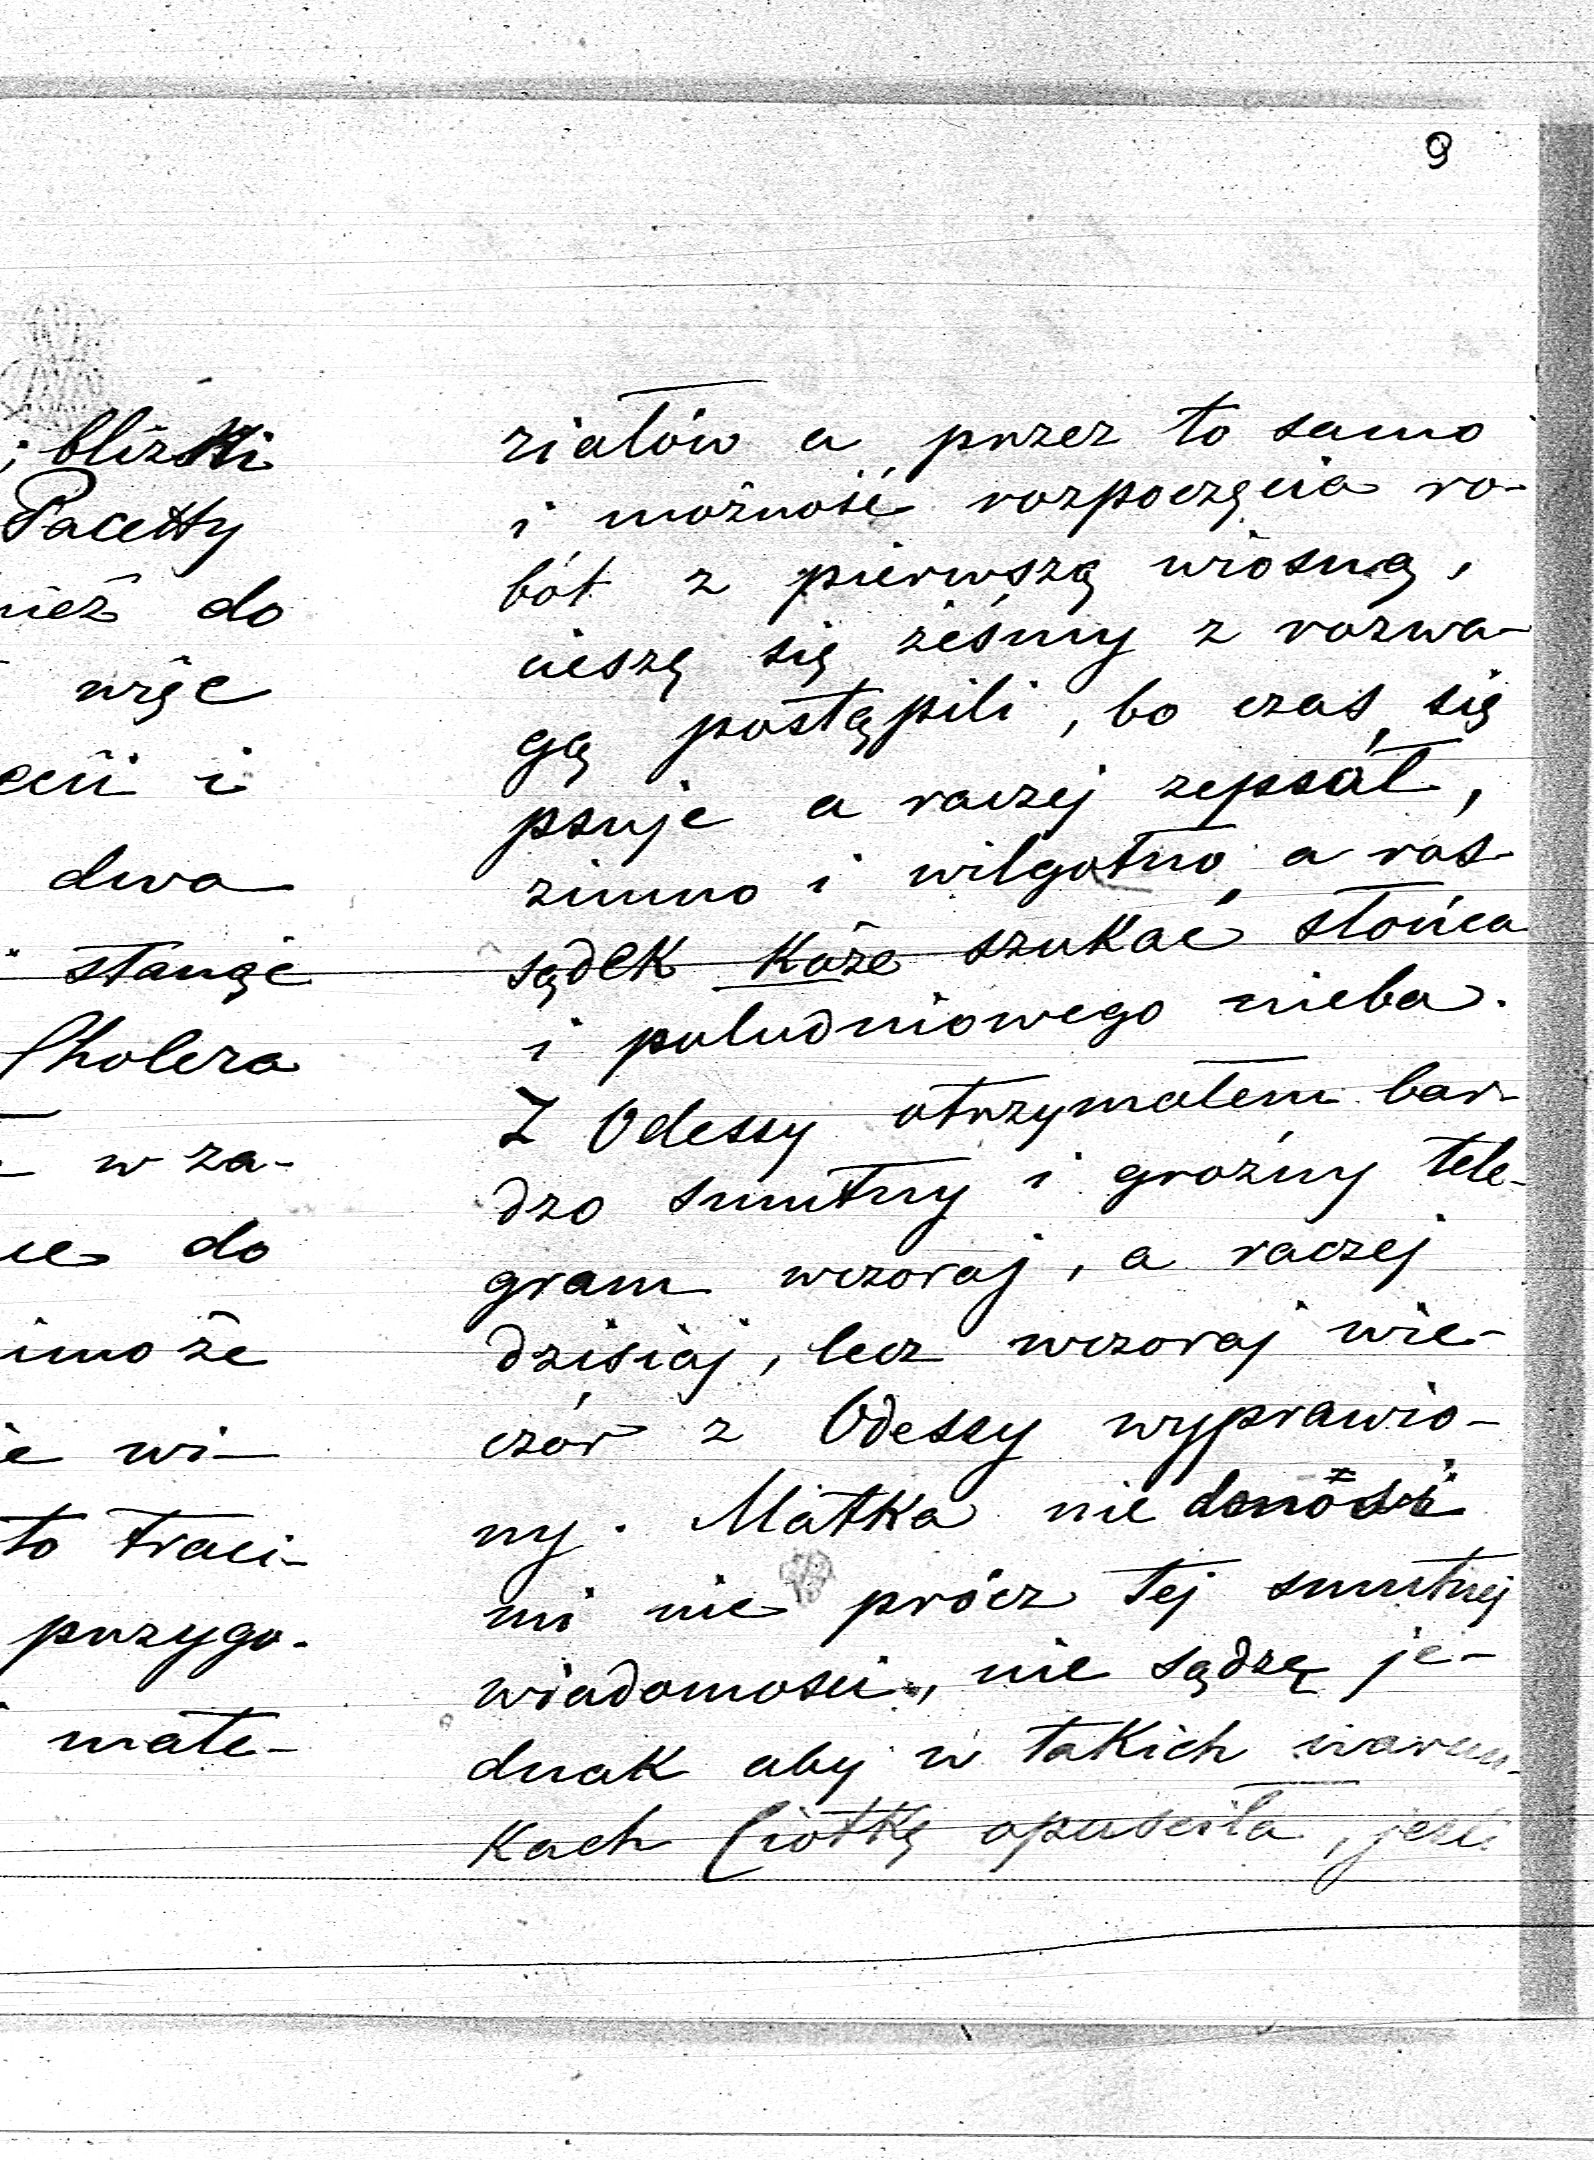 9
; blizki
Pacetty
nież do
więc
ecii i
dwa
stanąć
Cholera
w za-
ue do
imo że
ie wi-
to traci-
przygo-
mate-
riałów a przez to samo
i możność rozpoczęcia ro-
bót z pierwszą wiosną,
cieszę się żeśmy z rozwa-
gą postąpili, bo czas się
psuje a raczej zepsał,
zimno i wilgotno a roz-
sądek każe szukać słońca
i południowego nieba.
Z Odessy otrzymałem bar-
dzo smutny i groźny tele-
gram wczoraj, a raczej
dzisiaj, lecz wczoraj wie-
czór z Odessy wyprawio-
ny. Matka nie donosi
mi nic prócz tej smutnej
wiadomości, nie sądzę je-
dnak aby w takich warun-
kach Ciotkę opuściła, jeśli